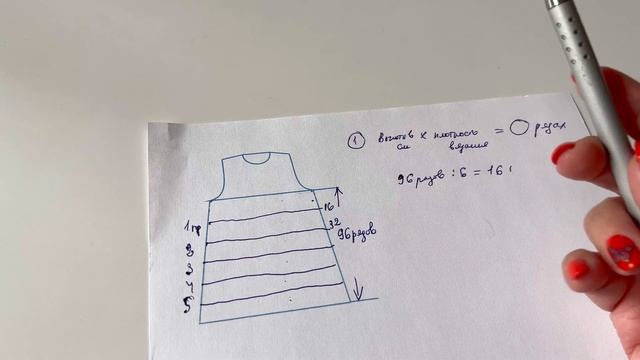 ① Высота × плотность = ◯ рядах
см вязания
96 рядов : 6 = 16
16
1 пр
32
96 рядов
2
3
4
5